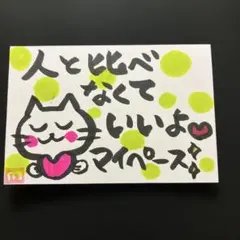 人と比べ
なくて
いいよ
マイペース